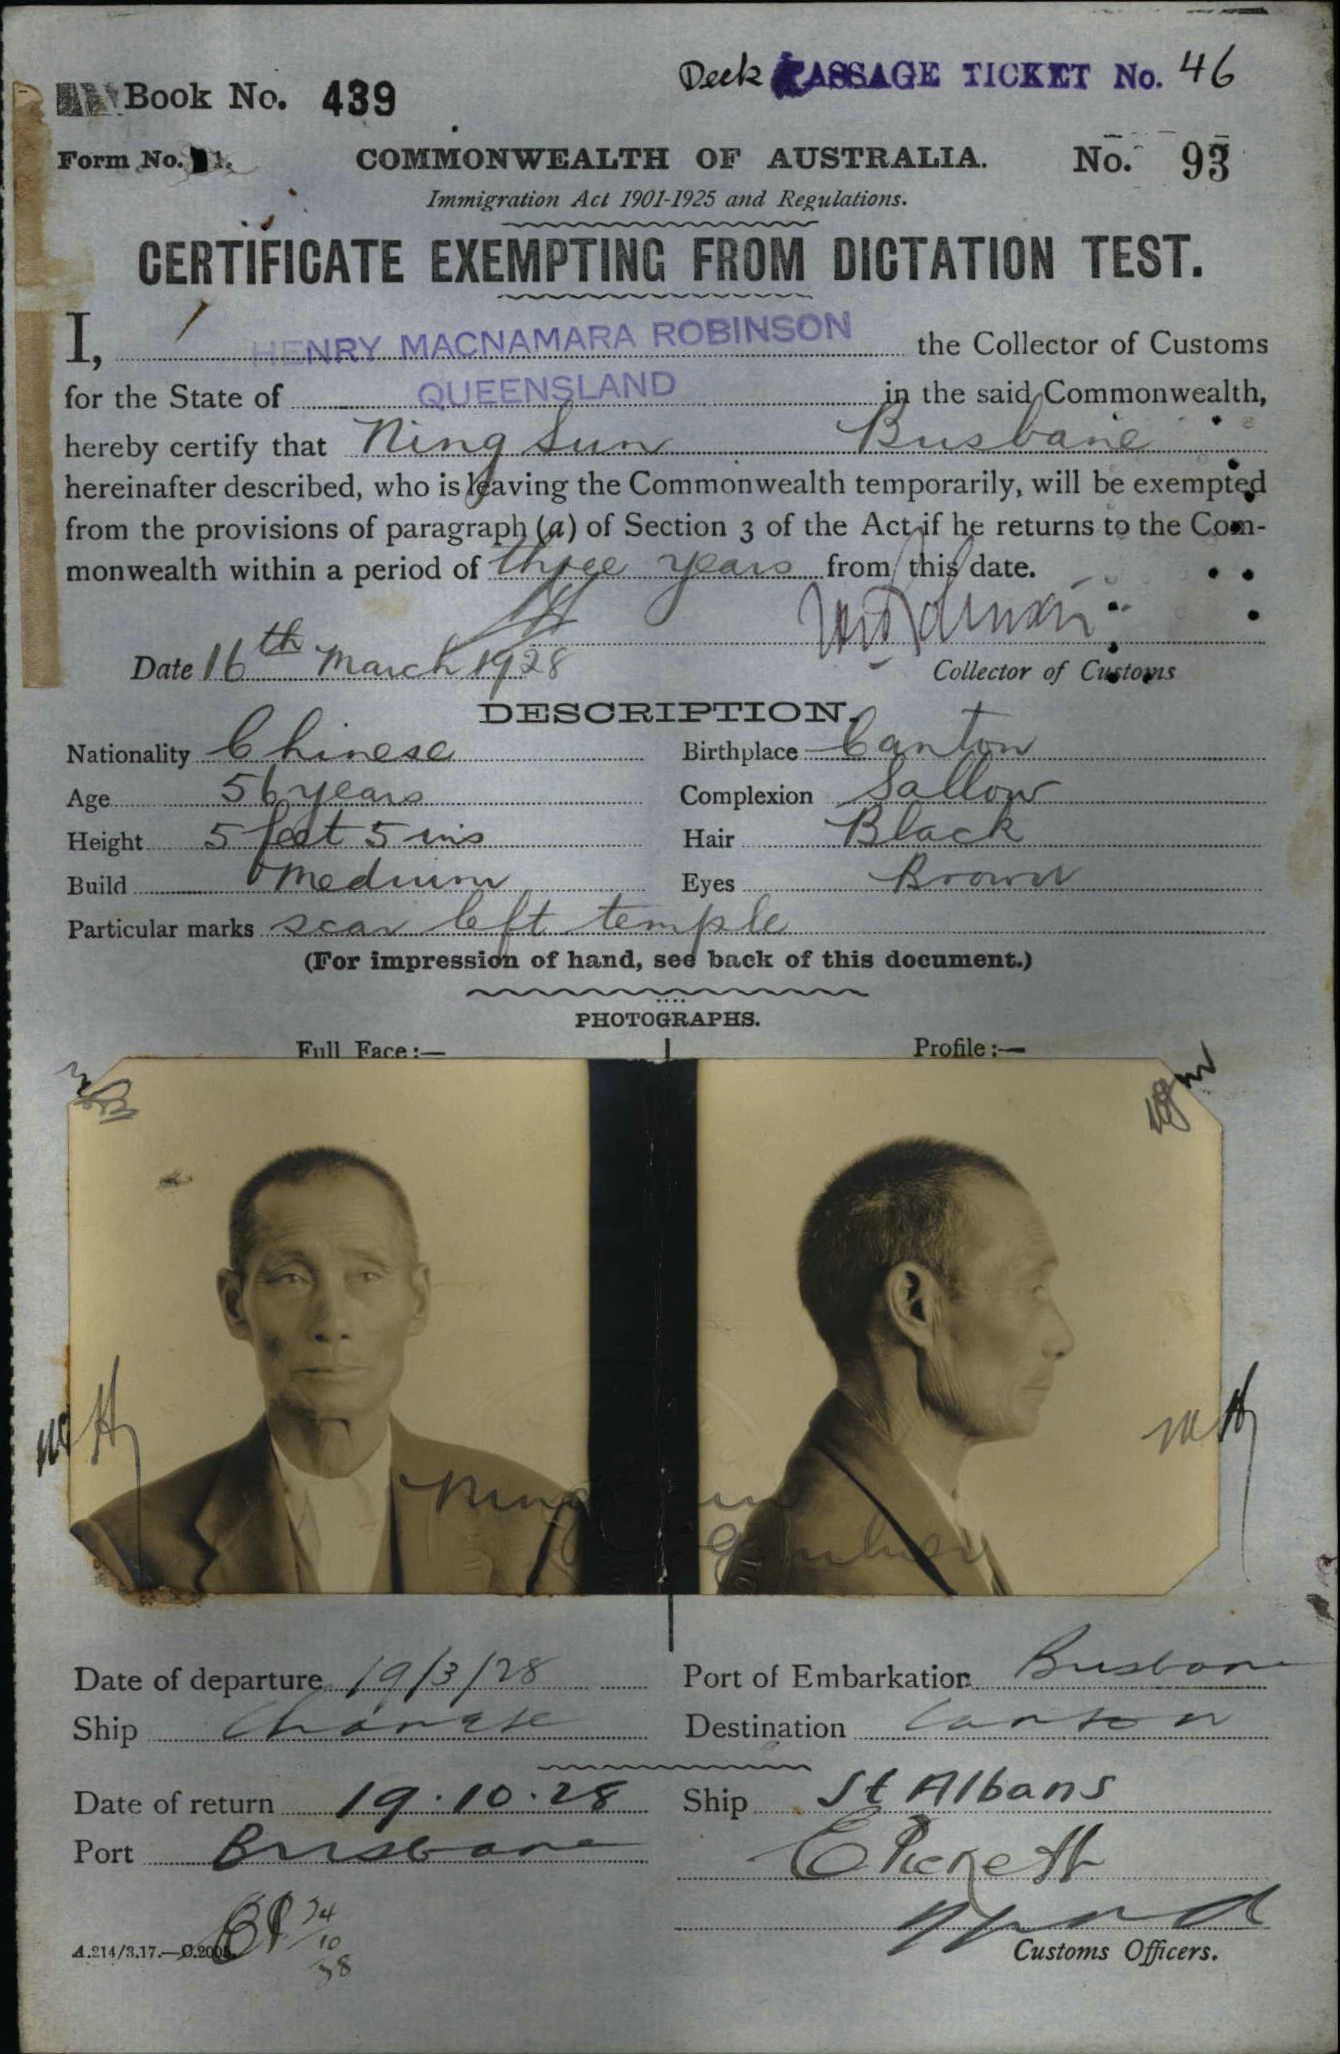 Deck PASSAGE TICKET No. 46
Book No. 439
Form No. 21.
COMMONWEALTH OF AUSTRALIA.
No. 93
Immigration Act 1901-1925 and Regulations.
CERTIFICATE EXEMPTING FROM DICTATION TEST.
I, HENRY MACNAMARA ROBINSON the Collector of Customs
for the State of QUEENSLAND in the said Commonwealth,
hereby certify that Ning Sun Brisbane
hereinafter described, who is leaving the Commonwealth temporarily, will be exempted
from the provisions of paragraph (a) of Section 3 of the Act if he returns to the Com-
monwealth within a period of three years from this date.
Date 16th March 1928
Collector of Customs
DESCRIPTION.
Nationality Chinese Birthplace Canton
Age 56 years Complexion Sallow
Height 5 feet 5 ins Hair Black
Build Medium Eyes Brown
Particular marks scar left temple
(For impression of hand, see back of this document.)
PHOTOGRAPHS.
Full Face:— Profile:—
Ning Sun
Date of departure 19/3/28 Port of Embarkation Brisbane
Ship Changte Destination Canton
Date of return 19.10.28 Ship St Albans
Port Brisbane
E Pickett
EP 24/10/28
A.214/3.17.—C.2005.
Customs Officers.